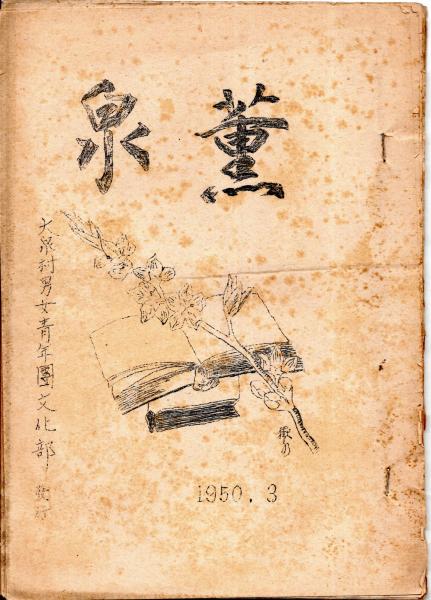 薫泉
大泉村男女青年團文化部 発行
1950.3